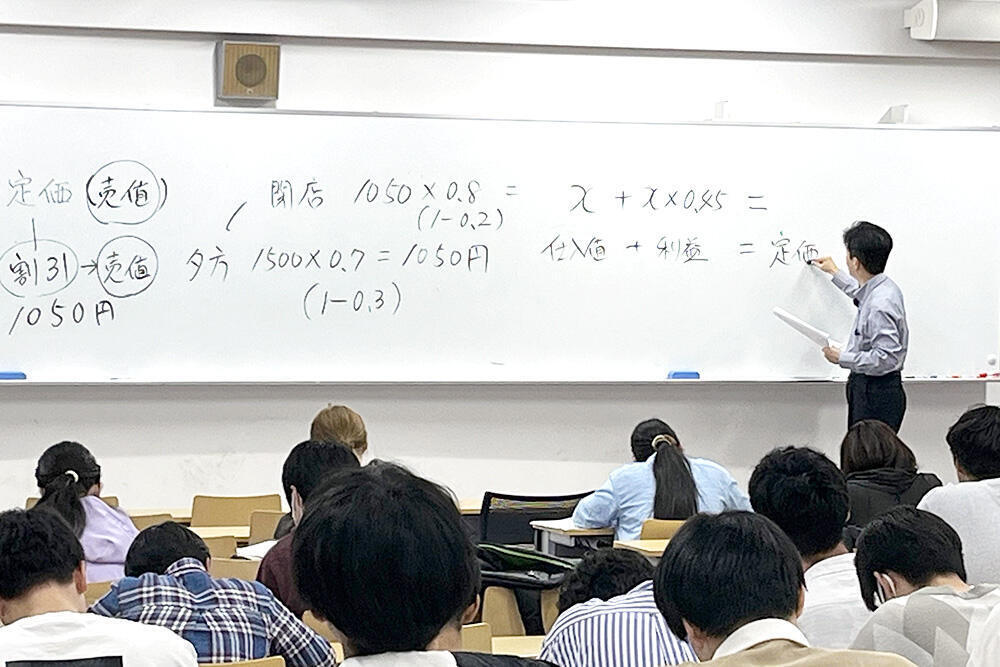 定価(売値)
割引→売値
1050円
閉店 1050×0.8 =
(1-0.2)
夕方 1500×0.7=1050円
(1-0.3)
x + x×0.45 =
仕入値 + 利益 = 定価